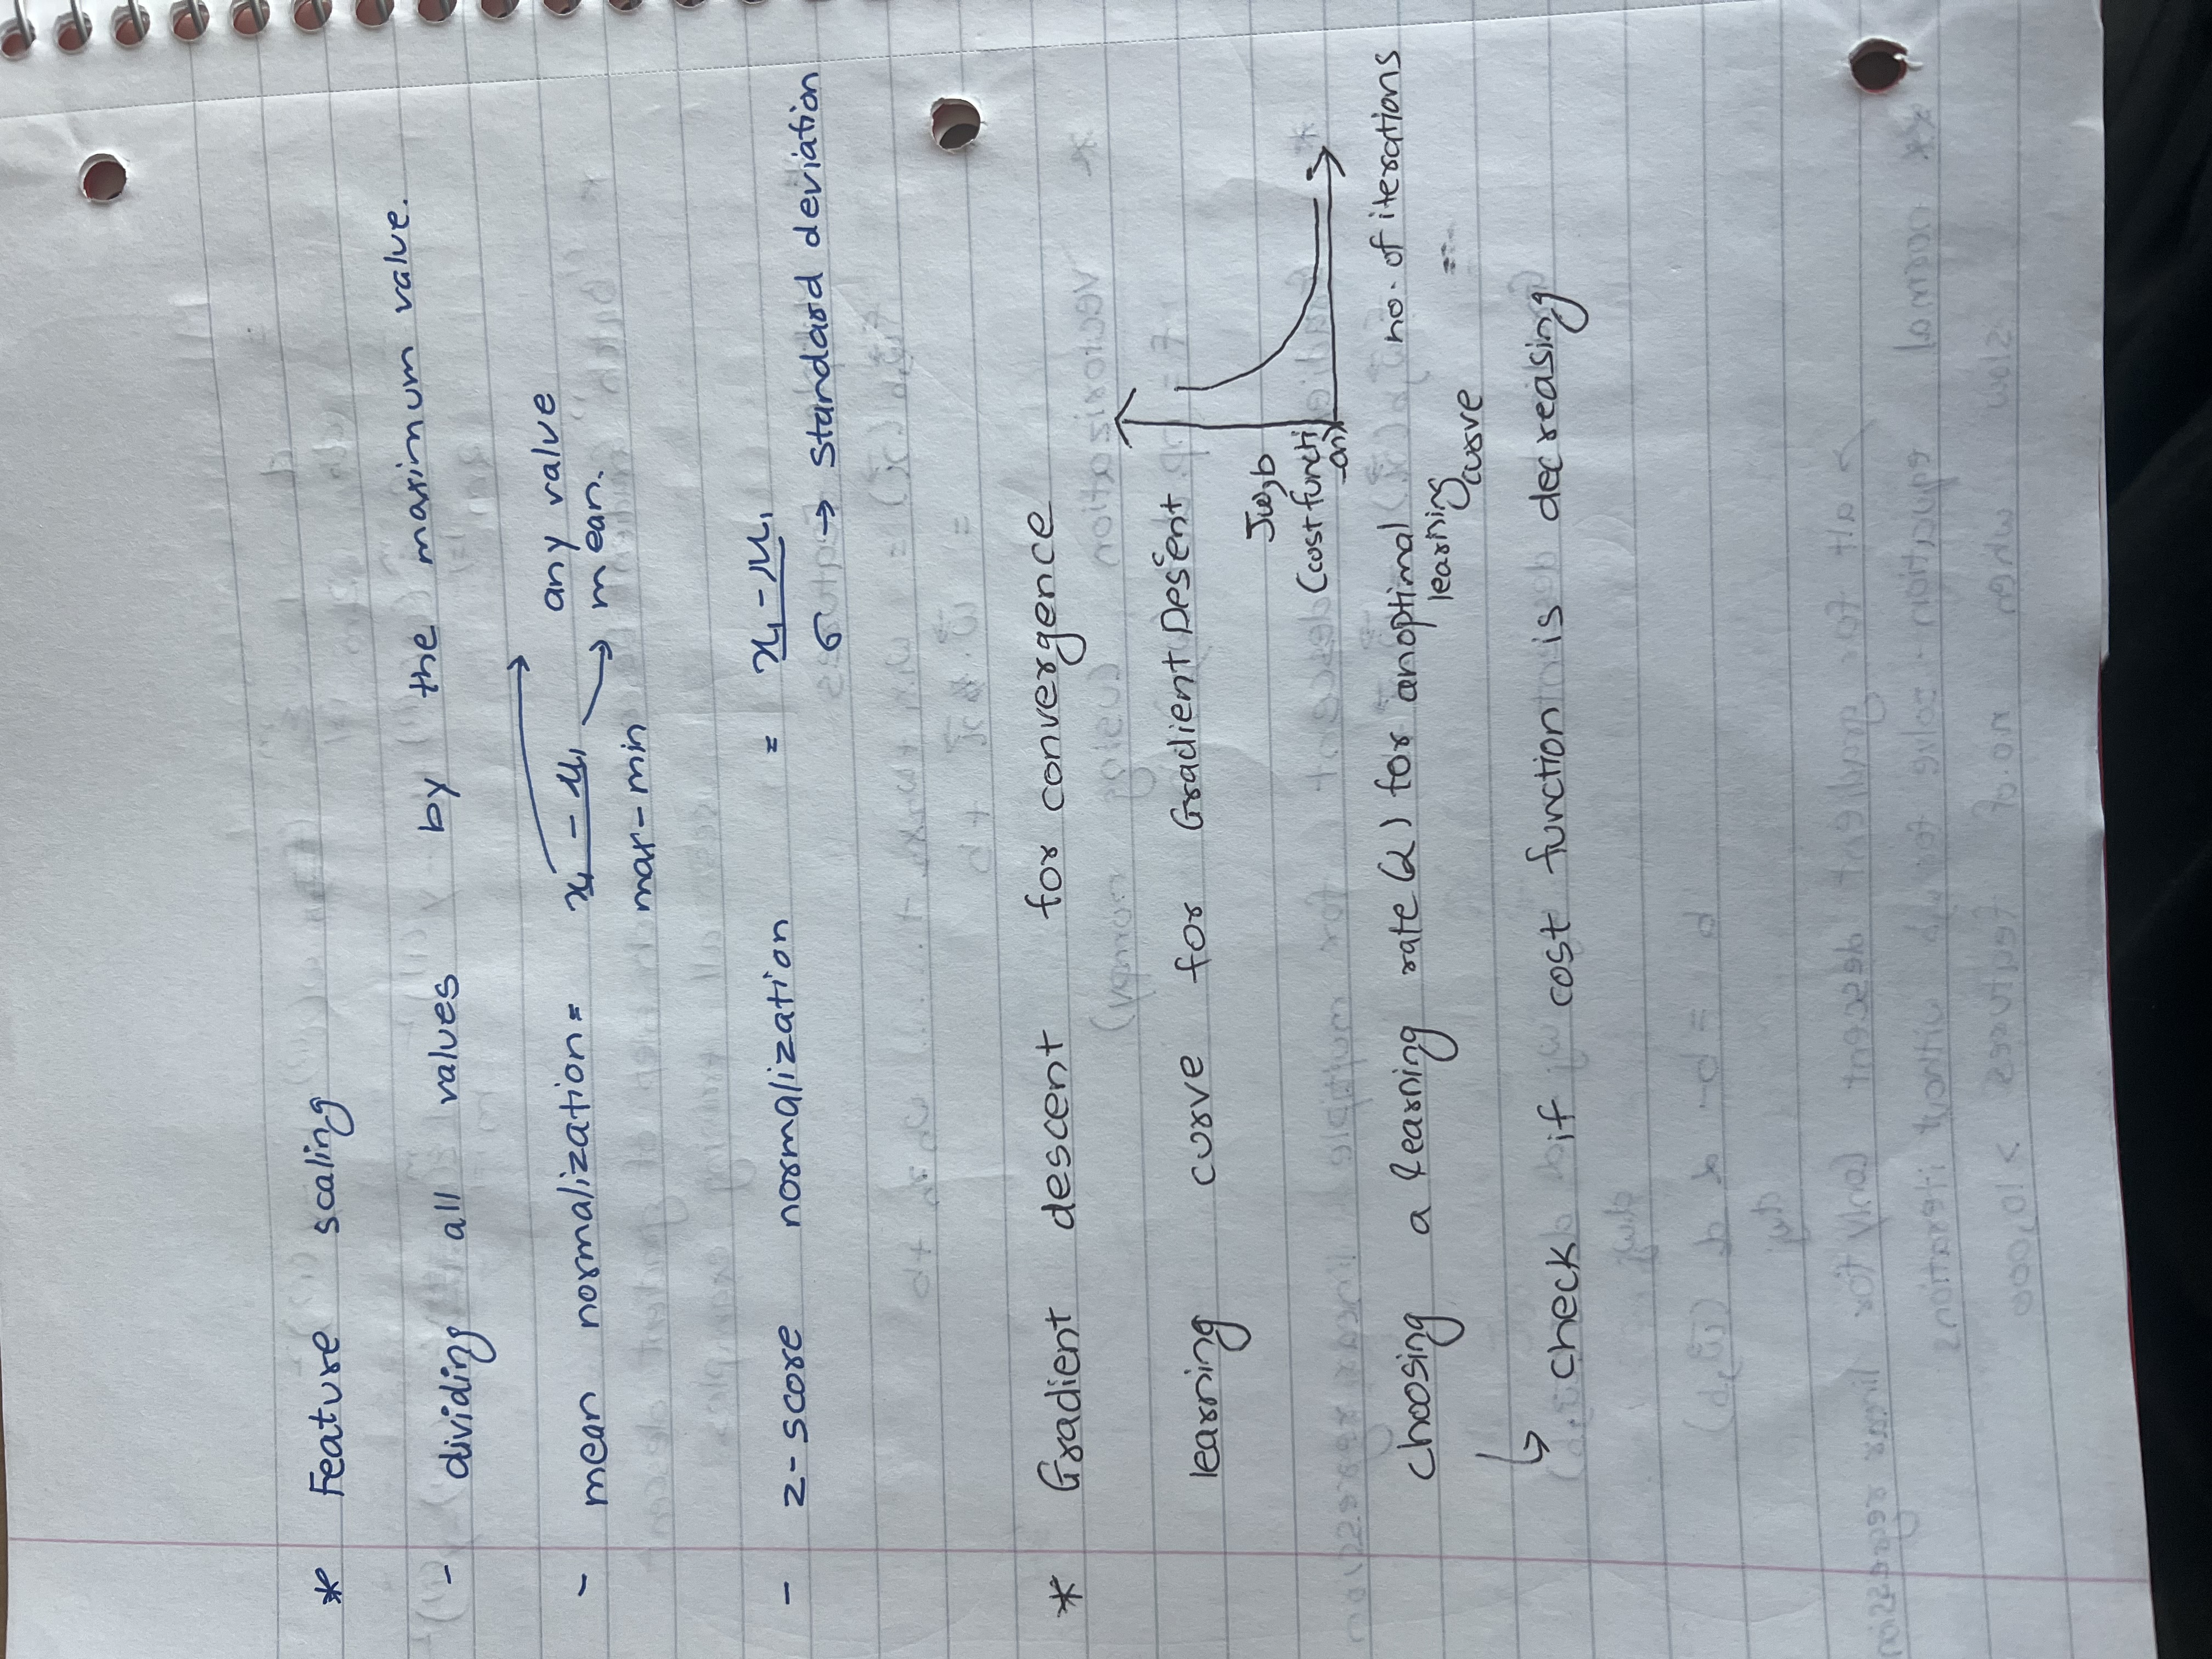 * Feature scaling
- dividing all values by the maximum value.
- mean normalization = x₁ - μ₁ → any value
→ mean.
max - min
- z-score normalization = x₁ - μ₁
σ → standard deviation
* Gradient descent for convergence
learning curve for Gradient Descent
Jw,b
(cost functi
-on)
no. of iterations
choosing a learning rate (α) for an optimal
learning
curve
↳ check if cost function is decreasing